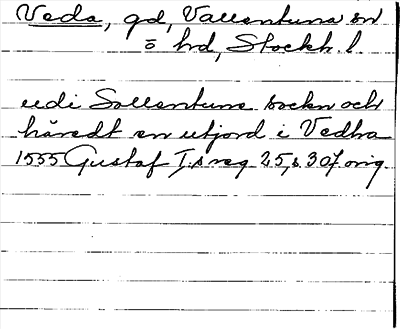 Veda, gd, Vallentuna sn
o hd, Stockh. l.
udi Sollentuna socken och
häredt en utjord i Vedha
1555 Gustaf I:s reg 25, s. 307 orig.